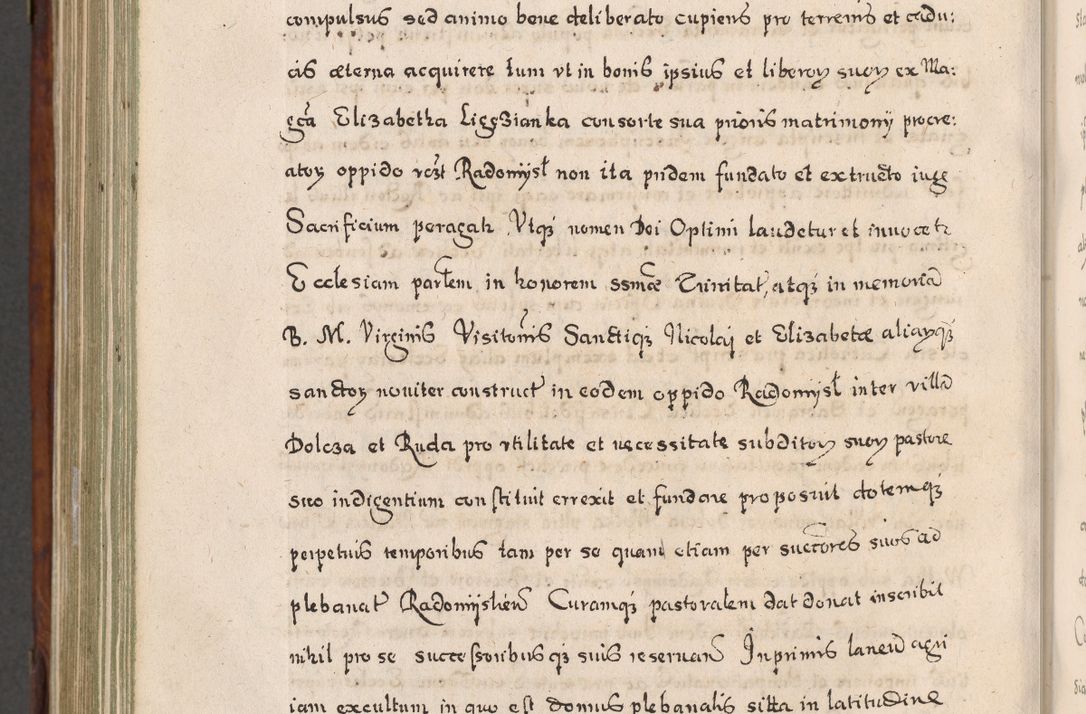 compulsus sed animo bene deliberato cupiens pro terrenis et cadu:
cis æterna acquirere tum vt in bonis ipsius et liberoꝝ suoꝝ ex Ma:
gca Elizabetha Ligęzianka consorte sua prioris matrimonij procre:
atoꝝ oppido vczt Radomysł non ita pridem fundato et extructo iuge
Sacrificium peragatr Vtqꝫ nomen Dei Optimi laudetur et inuocetr
Ecclesiam partem in honorem ssmæ Trinitat, atqꝫ in memoria
B. M. Virginis Visitonis Sanctiqꝫ Nicolaj et Elizabetæ aliaꝝqꝫ
sanctoꝝ noviter construct in eodem oppido Radomysł inter villa
Dolcza et Ruda pro vtilitate et necessitate subditoꝝ suoꝝ pastore
suo indigentium constituit errexit et fundare proposuit dotemqꝫ
perpetuis temporibus tam per se quam etiam per succores suos ad
plebanat Radomysłien Curamqꝫ pastoralem dat donat inscribit
nihil pro se successoribusqꝫ suis reservan Inprimis laneu agri
iam excultum in quo est domus plebanalis sitta in latitudine